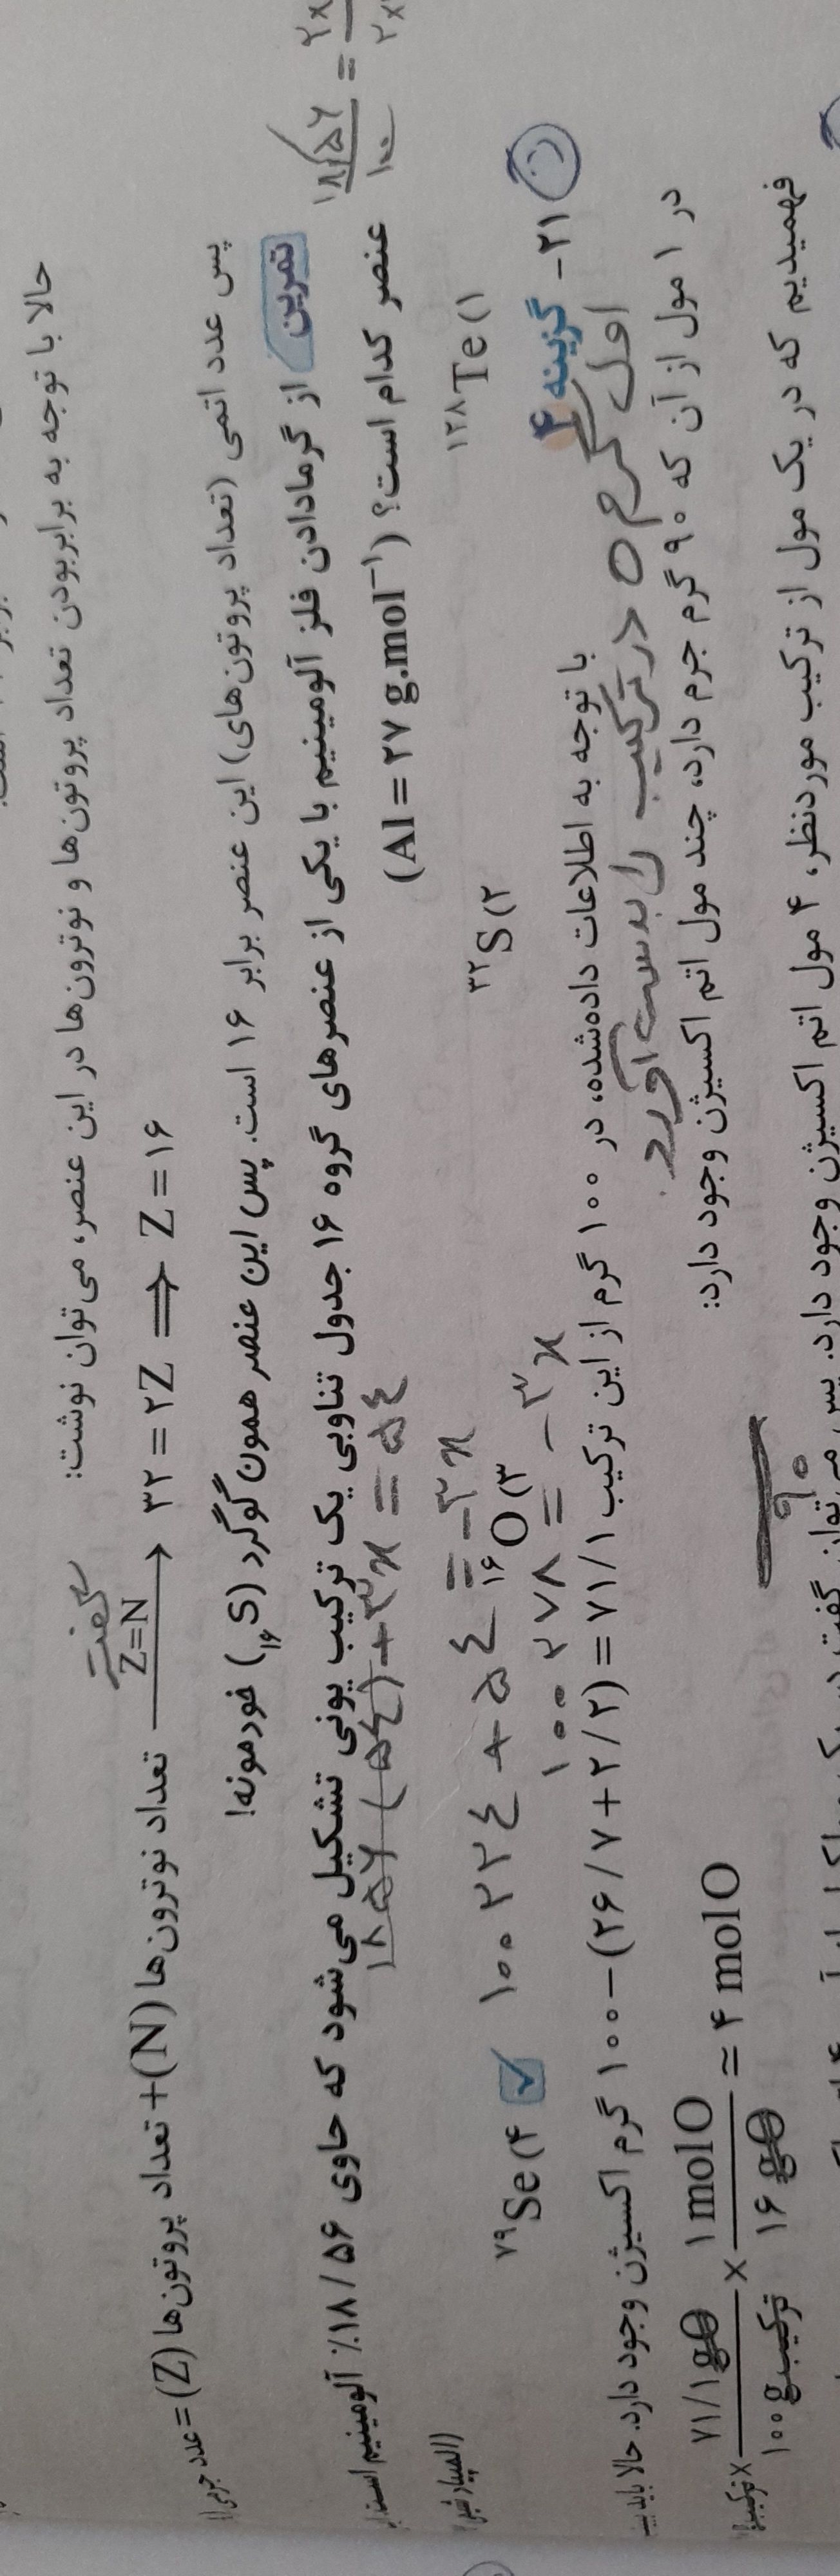 حالا با توجه به برابربودن تعداد پروتون‌ها و نوترون‌ها در این عنصر، می‌توان نوشت:
گفته
عدد جرمی = (Z) تعداد پروتون‌ها + (N) تعداد نوترون‌ها Z=N → ۳۲ = ۲Z ⟹ Z = ۱۶
پس عدد اتمی (تعداد پروتون‌های) این عنصر برابر ۱۶ است. پس این عنصر همون گوگرد (₁₆S) خودمونه!
تمرین از گرمادادن فلز آلومینیم با یکی از عنصرهای گروه ۱۶ جدول تناوبی یک ترکیب یونی تشکیل می‌شود که حاوی ۱۸/۵۶٪ آلومینیم است.
۱۸/۵۶ / ۱۰۰ = ۲x
۱۸۵۶ (۵۴) + ۳x = ۵۴
عنصر کدام است؟ (Al = ۲۷ g.mol⁻¹) (المپیاد شیمی
۱) ¹²⁸Te
۲) ³²S
۳) ¹⁶O
۴) ⁷⁹Se ✓
۱۰۰۲۲۴ + ۵۴ = −۳x
۱۰۰۲۷۸ = −۳x
۲۱- گزینه ۴ با توجه به اطلاعات داده‌شده، در ۱۰۰ گرم از این ترکیب ۷۱/۱ = (۲۶/۷ + ۲/۲) − ۱۰۰ گرم اکسیژن وجود دارد. حالا باید
اول گرم O در ترکیب را بدست آورد.
در ۱ مول از آن که ۹۰ گرم جرم دارد، چند مول اتم اکسیژن وجود دارد:
ترکیب × ۷۱/۱ g O / ۱۰۰ g ترکیب × ۱ mol O / ۱۶ g O ≃ ۴ mol O
۹۰
فهمیدیم که در یک مول از ترکیب موردنظر، ۴ مول اتم اکسیژن وجود دارد. پس می‌توان گفت